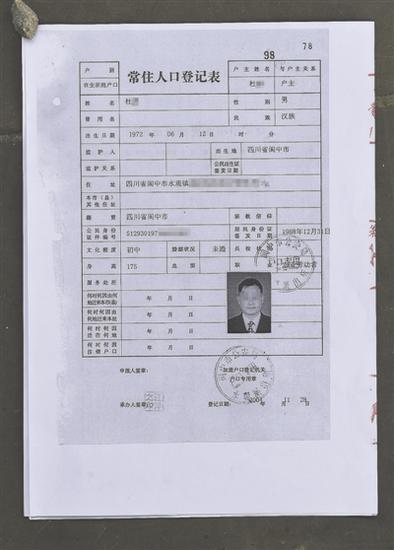 98 78
户别 常住人口登记表 户主姓名 与户主关系
农业家庭户口 杜 户主
姓名 杜 性别 男
曾用名 民族 汉族
出生日期 1972年 06月 12日 时 分
监护人 出生地 四川省阆中市
监护关系 公民出生证签发日期
住址 四川省阆中市水观镇
本市(县)其他住址
籍贯 四川省阆中市 宗教信仰
公民身份证件编号 512930197 居民身份证签发日期 1988年12月31日
文化程度 初中 婚姻状况 未婚 兵役
身高 175 血型 职业
服务处所
何时何因由何地迁来本市(县) 年 月 日
何时何因由何地迁来本址 年 月 日
何时何因迁往何地 年 月 日
何时何因注销户口 年 月 日
申报人签章: 加盖户口登记机关
户口专用章
承办人签章: 登记日期: 2004年 11月 28日